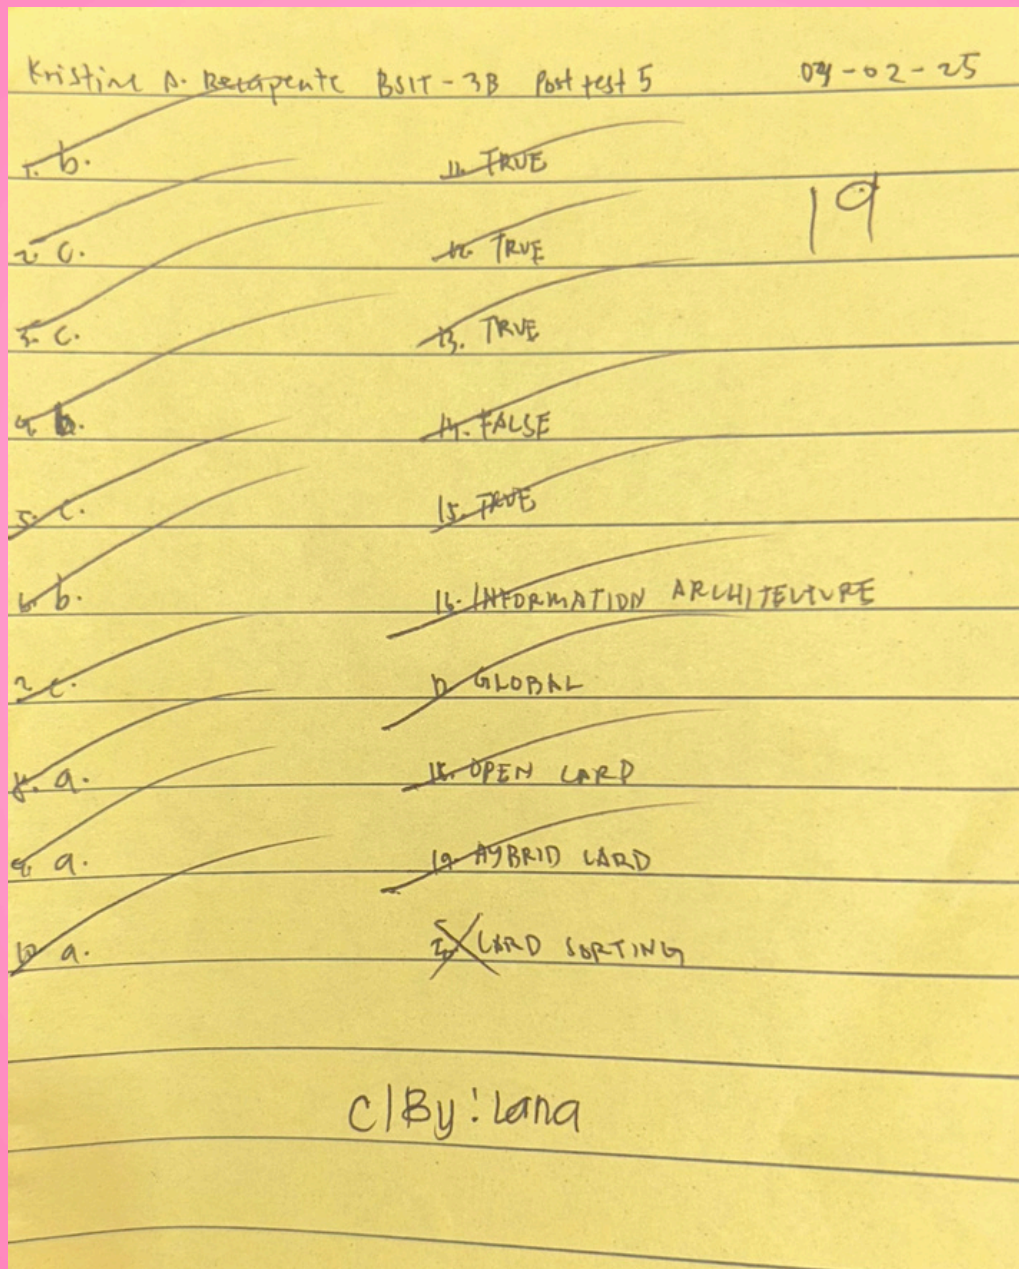 Kristine A. Recapente BSIT - 3B Post test 5 04-02-25
19
1. b.
2. c.
3. c.
4. b.
5. c.
6. b.
7. c.
8. a.
9. a.
10. a.
11. TRUE
12. TRUE
13. TRUE
14. FALSE
15. TRUE
16. INFORMATION ARCHITECTURE
17. GLOBAL
18. OPEN CARD
19. HYBRID CARD
20. CARD SORTING
C/By: Lana